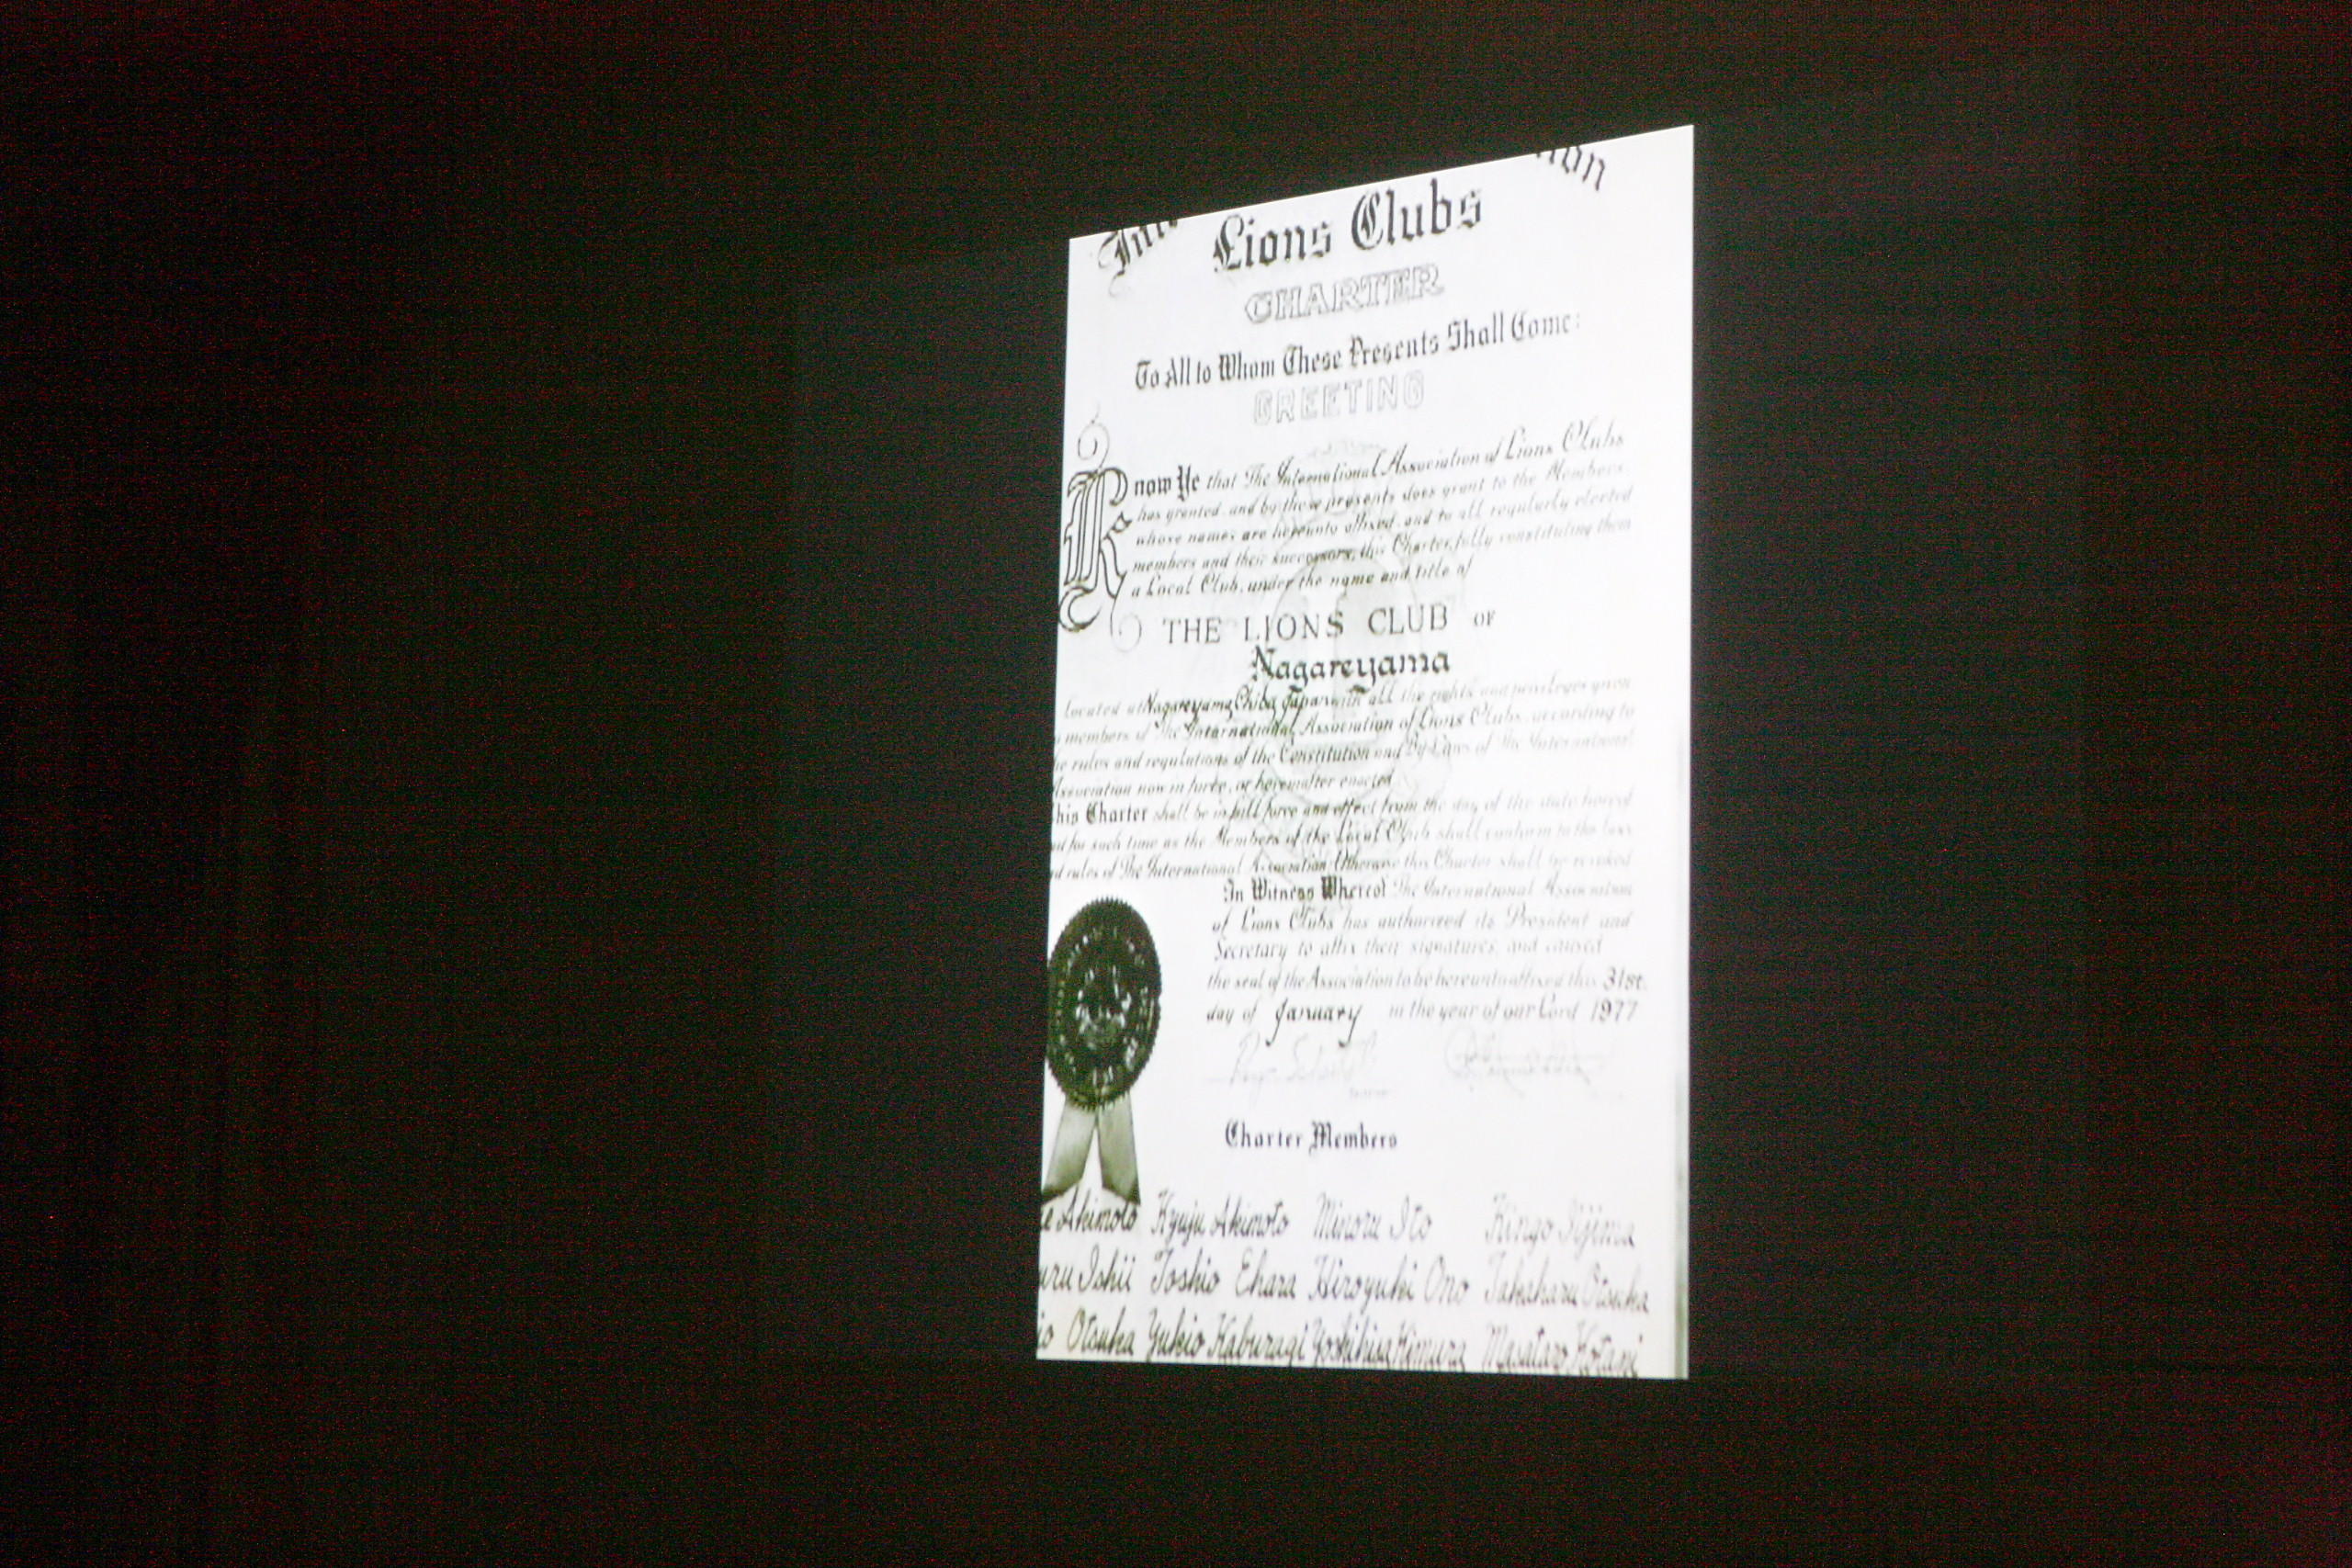 Lions Clubs
CHARTER
To All to Whom These Presents Shall Come:
GREETING
Know Ye that The International Association of Lions Clubs
has granted, and by these presents does grant to the Members,
whose names are hereunto affixed, and to all regularly elected
members and their successors, this Charter, fully constituting them
a Local Club, under the name and title of
THE LIONS CLUB OF
Nagareyama
located at Nagareyama, Chiba, Japan with all the rights and privileges given
members of The International Association of Lions Clubs, according to
rules and regulations of the Constitution and By-Laws of The International
Association now in force, or hereinafter enacted.
his Charter shall be in full force and effect from the day of the date hereof
for such time as the Members of the Local Club shall conform to the laws
rules of The International Association. Otherwise this Charter shall be revoked.
In Witness Whereof The International Association
of Lions Clubs has authorized its President and
Secretary to affix their signatures, and caused
the seal of the Association to be hereunto affixed this 31st.
day of January in the year of our Lord 1977
Charter Members
e Akimoto Kyuju Akimoto Minoru Ito Kingo Iijima
uru Ishii Toshio Ehara Hiroyuki Ono Takaharu Otsuka
io Otsuka Yukio Kaburagi Yoshihisa Kimura Masataro Kotani